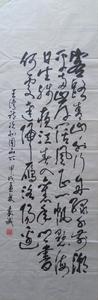 客路青山外行舟綠水前潮
平兩岸闊風正一帆懸海
日生殘夜江春入舊年鄉書
何處達歸雁洛陽邊
王灣詩次北固山下甲午夏